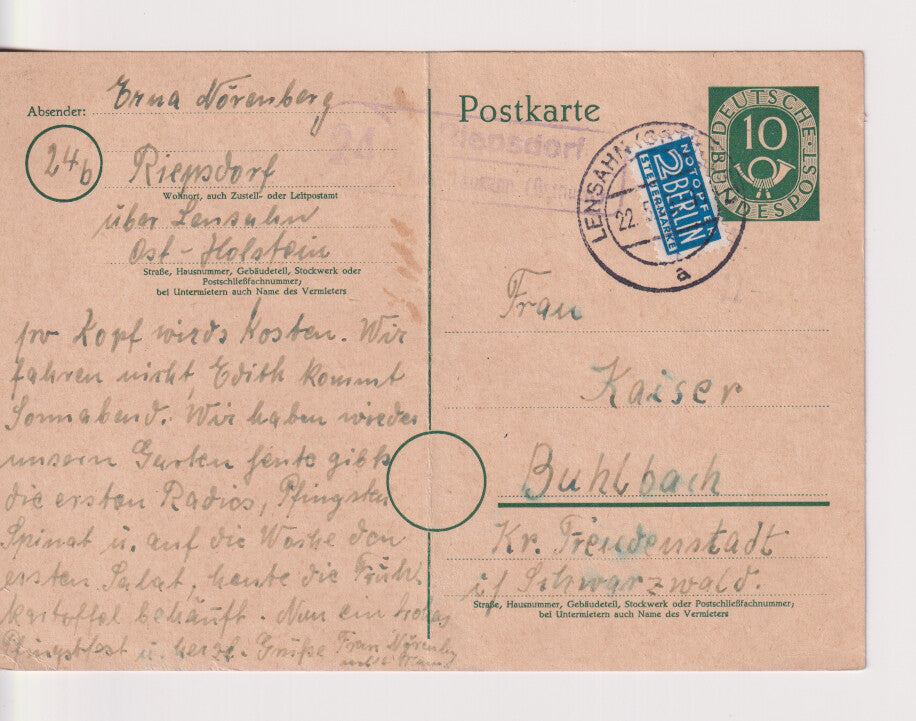 Absender: Erna Nörenberg
24b
Riepsdorf
Wohnort, auch Zustell- oder Leitpostamt
über Lensahn
Ost-Holstein
Straße, Hausnummer, Gebäudeteil, Stockwerk oder
Postschließfachnummer;
bei Untermietern auch Name des Vermieters
pro Kopf wirds kosten. Wir
fahren nicht, Edith kommt
Sonnabend. Wir haben wieder
unsern Garten heute gibts
die ersten Radies, Pfingsten
Spinat u. auf die Woche den
ersten Salat, heute die Früh-
kartoffel behäuft. Nun ein frohes
Pfingstfest u. herzl. Grüße Frau Nörenberg
Postkarte
DEUTSCHE BUNDESPOST
10
LENSAHN
22.5
a
NOTOPFER
2 BERLIN
STEUERMARKE
Frau
Kaiser
Buhlbach
Kr. Freudenstadt
i/ Schwarzwald.
Straße, Hausnummer, Gebäudeteil, Stockwerk oder Postschließfachnummer;
bei Untermietern auch Name des Vermieters